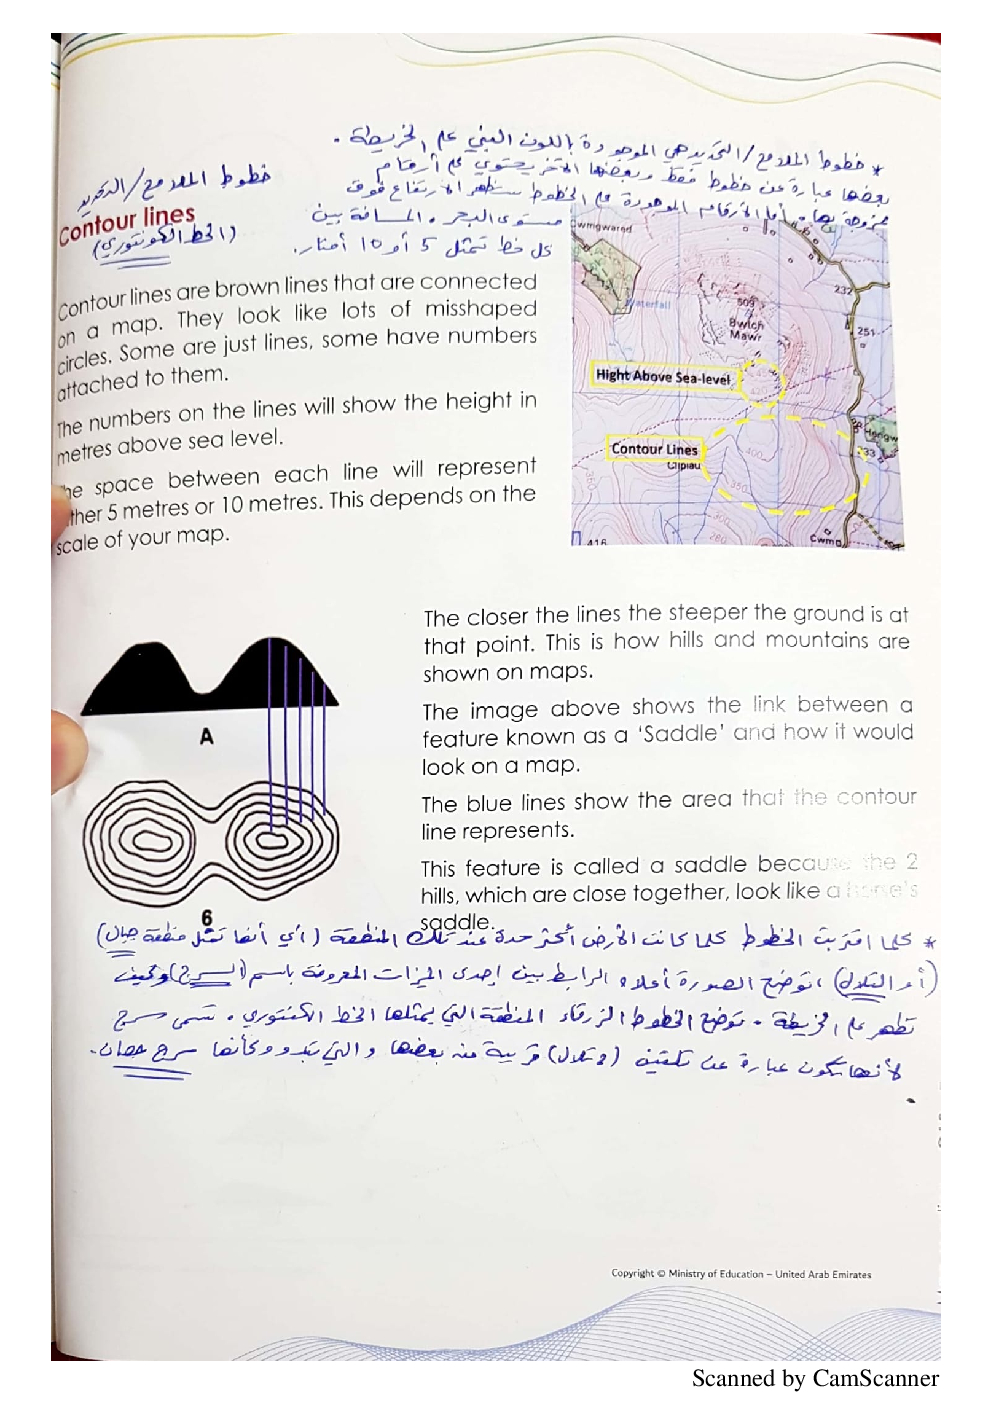 * خطوط الملامح/التحديد هي الموجودة باللون البني على الخريطة.
بعضها عبارة عن خطوط فقط وبعضها الآخر يحتوي على أرقام
بها. أما الأرقام الموجودة على الخطوط ستظهر الارتفاع فوق
مستوى البحر والمسافة بين
كل خط تمثل 5 أو 10 أمتار.
خطوط الملامح/التحديد
Contour lines
(الخط الكونتوري)
Contour lines are brown lines that are connected
on a map. They look like lots of misshaped
circles. Some are just lines, some have numbers
attached to them.
The numbers on the lines will show the height in
metres above sea level.
he space between each line will represent
ther 5 metres or 10 metres. This depends on the
scale of your map.
wmgwared
Waterfall
509
Bwlch
Mawr
232
251
Hight Above Sea-level
Contour Lines
400
350
300
280
Hengw
233
Cwmg
416
The closer the lines the steeper the ground is at
that point. This is how hills and mountains are
shown on maps.
The image above shows the link between a
feature known as a 'Saddle' and how it would
look on a map.
The blue lines show the area that the contour
line represents.
This feature is called a saddle because the 2
hills, which are close together, look like a horse's
saddle.
A
6
* كلما اقتربت الخطوط كلما كانت الأرض أكثر حدة عند تلك المنطقة (أي أنها تمثل منطقة جبال)
(أو التلال) توضح الصورة أعلاه الرابط بين إحدى الميزات المعروفة باسم (السرج) وكيف
تظهر على الخريطة. توضح الخطوط الزرقاء المنطقة التي يمثلها الخط الكنتوري. تسمى سرج
لأنها تكون عبارة عن (2 تلال) قريبة من بعضها والتي تبدو وكأنها سرج حصان.
Copyright © Ministry of Education – United Arab Emirates
Scanned by CamScanner